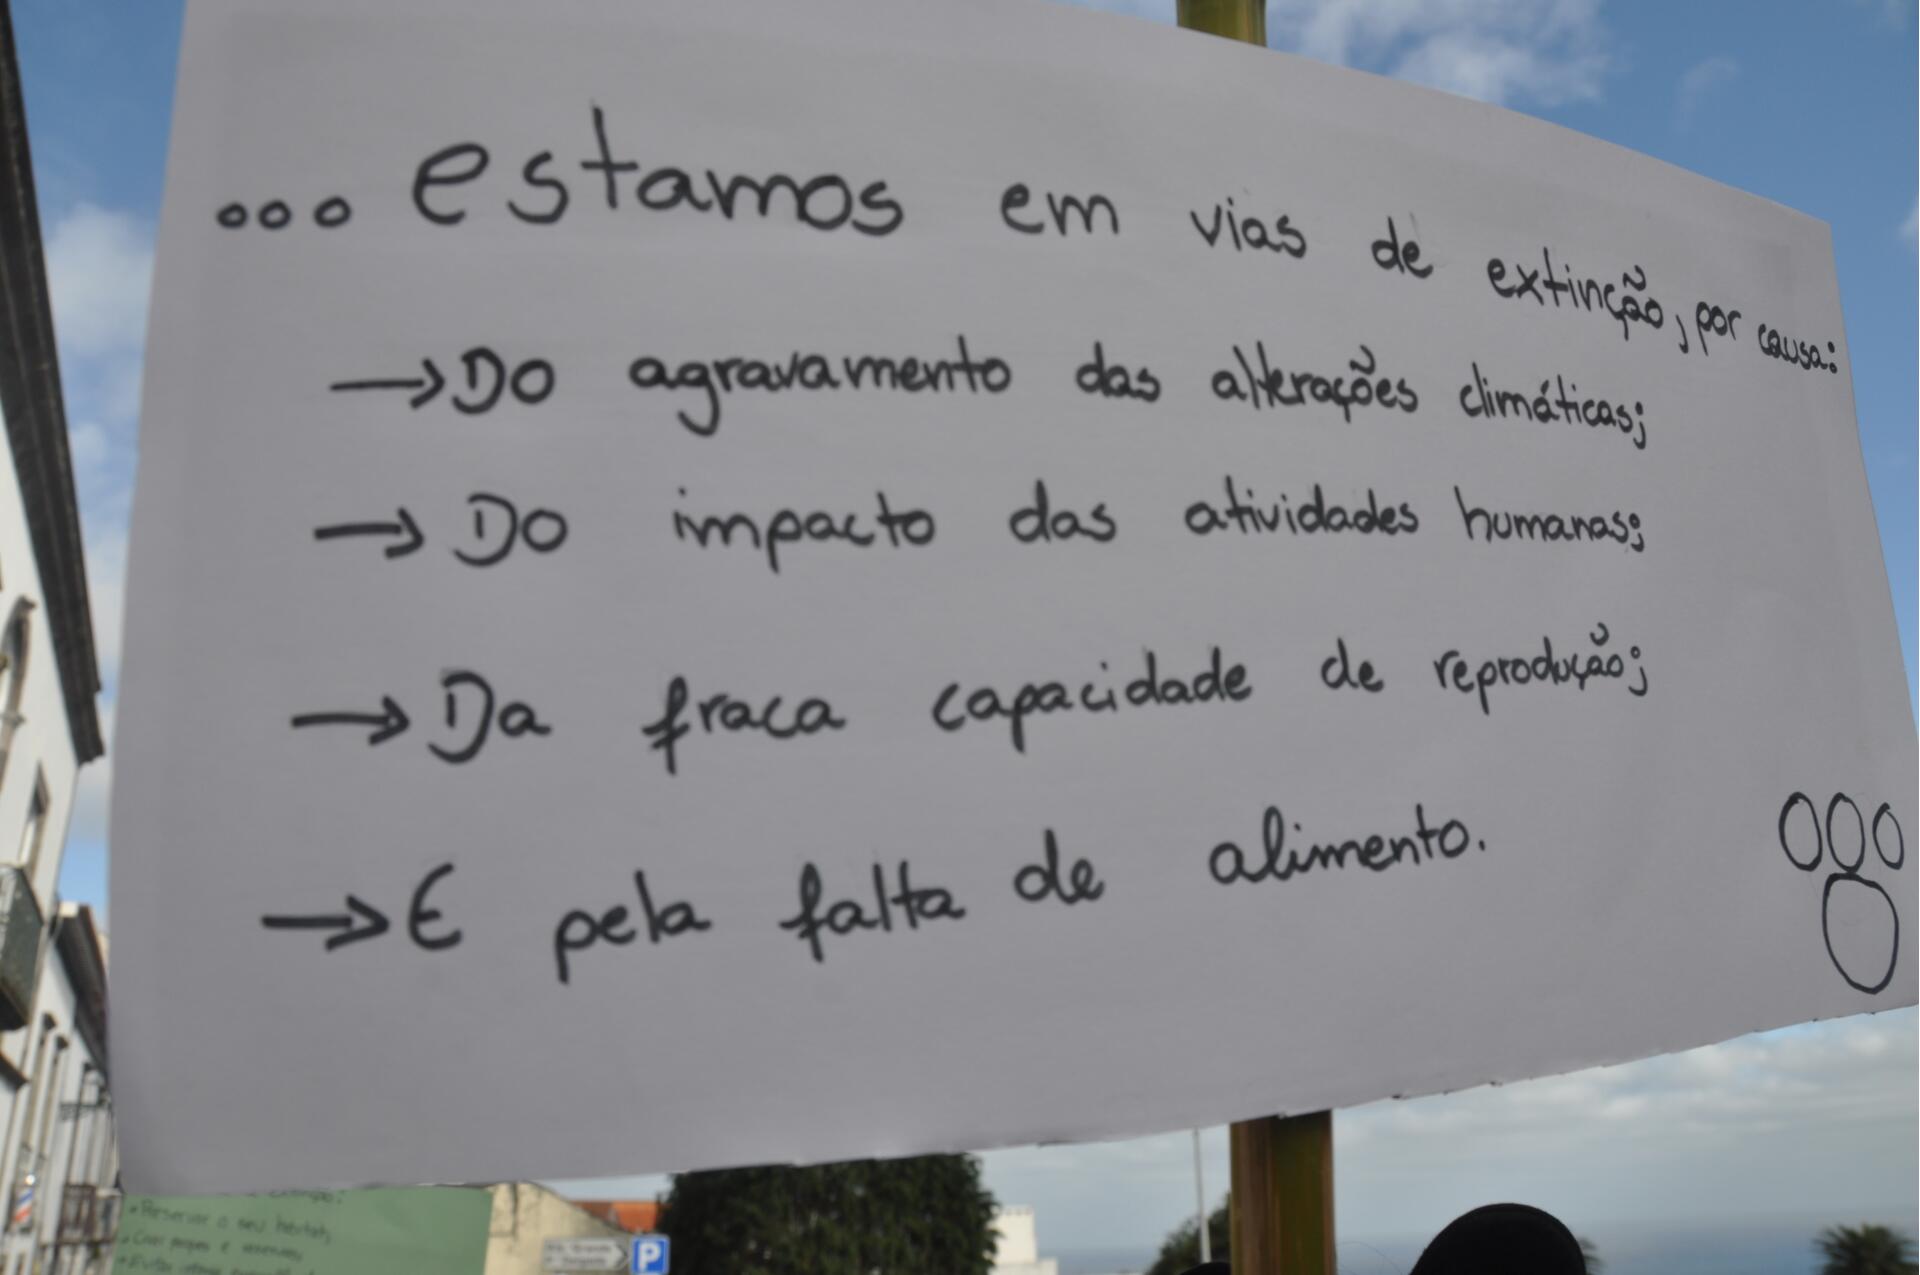 ... estamos em vias de extinção, por causa:
→ Do agravamento das alterações climáticas;
→ Do impacto das atividades humanas;
→ Da fraca capacidade de reprodução;
→ E pela falta de alimento.
• Preservar o seu habitat;
• Criar parques e reservas;
• Evitar
P